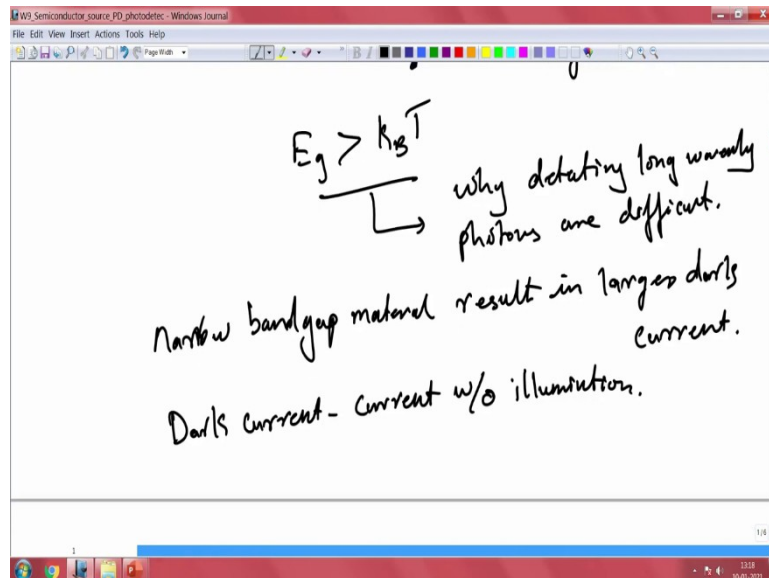 W9_Semiconductor_source_PD_photodetec - Windows Journal
File Edit View Insert Actions Tools Help
Page Width
B I
Eg > kBT
why detating long wavenly
photons are difficut.
Narrow bandgap material result in larges dark
current.
Dark current - current w/o illumintion.
1/6
1
13:18
30-01-2021